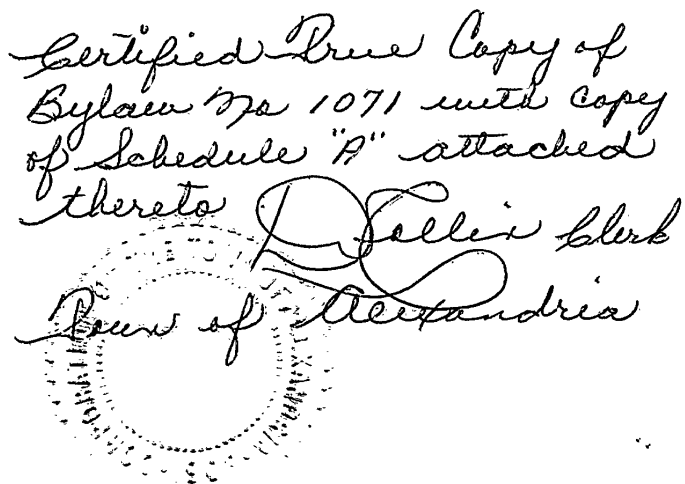 Certified True Copy of
Bylaw No 1071 with copy
of Schedule "A" attached
thereto
Clerk
Town of Alexandria